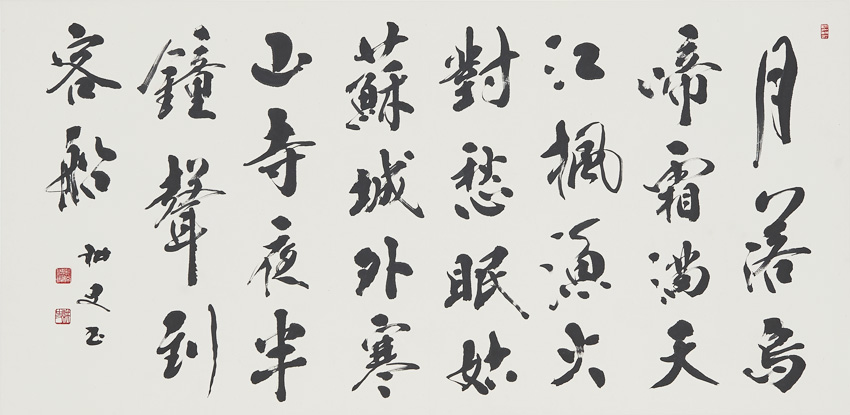 月落烏
啼霜滿天
江楓漁火
對愁眠姑
蘇城外寒
山寺夜半
鐘聲到
客船